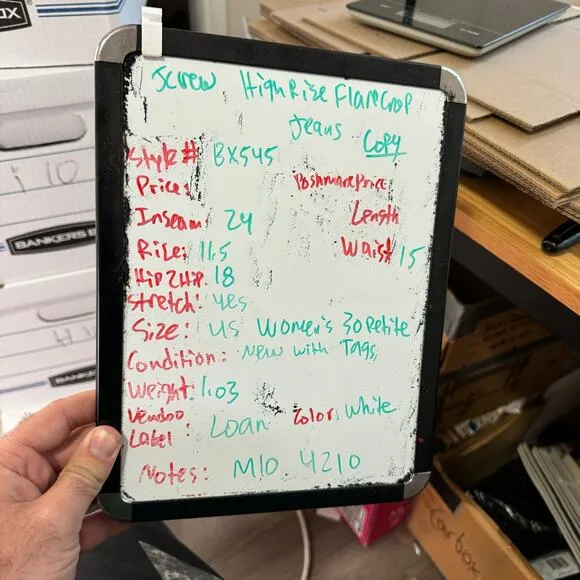 Jcrew High Rise Flare Crop
Jeans Copy
Style# BX545
Price: Poshmark Price
Inseam: 24 Length
Rise: 11.5 Waist 15
Hip 2 Hip. 18
Stretch: yes
Size: US Women's 30 Petite
Condition: New with Tags
Weight: 1.03
Vendoo Label: Loan Color White
Notes: M10 4210
BANKERS B
110